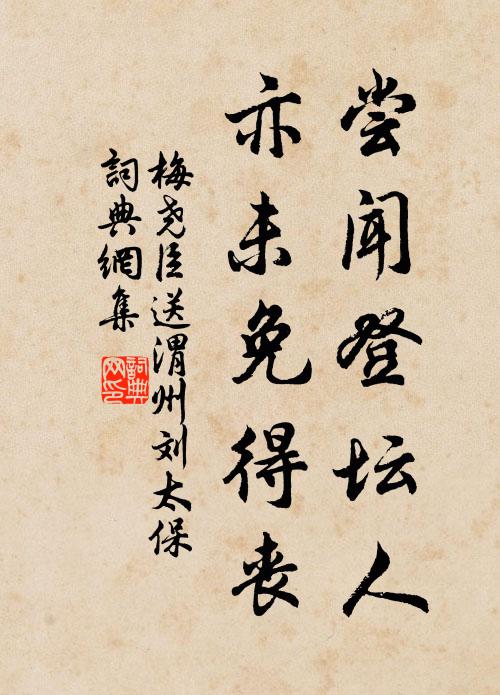 尝闻登坛人
亦未免得丧
梅尧臣送渭州刘太保
詞典網集
詞典网印